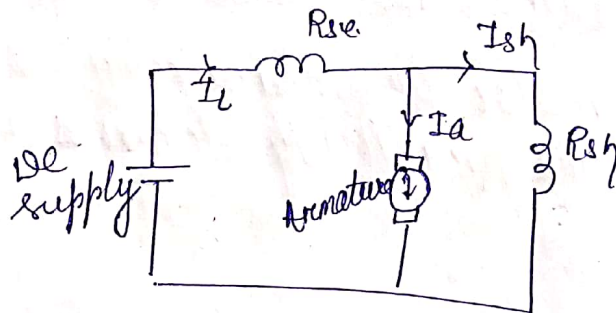 Rse.
Ish
IL
Ia
Rsh
DC
supply
Armature